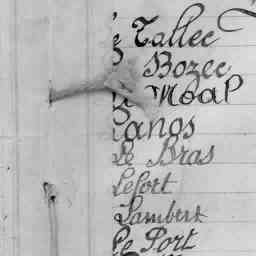 Tallec
Bozec
Moal
Lanos
Le Bras
Lefort
Lambert
Le Port